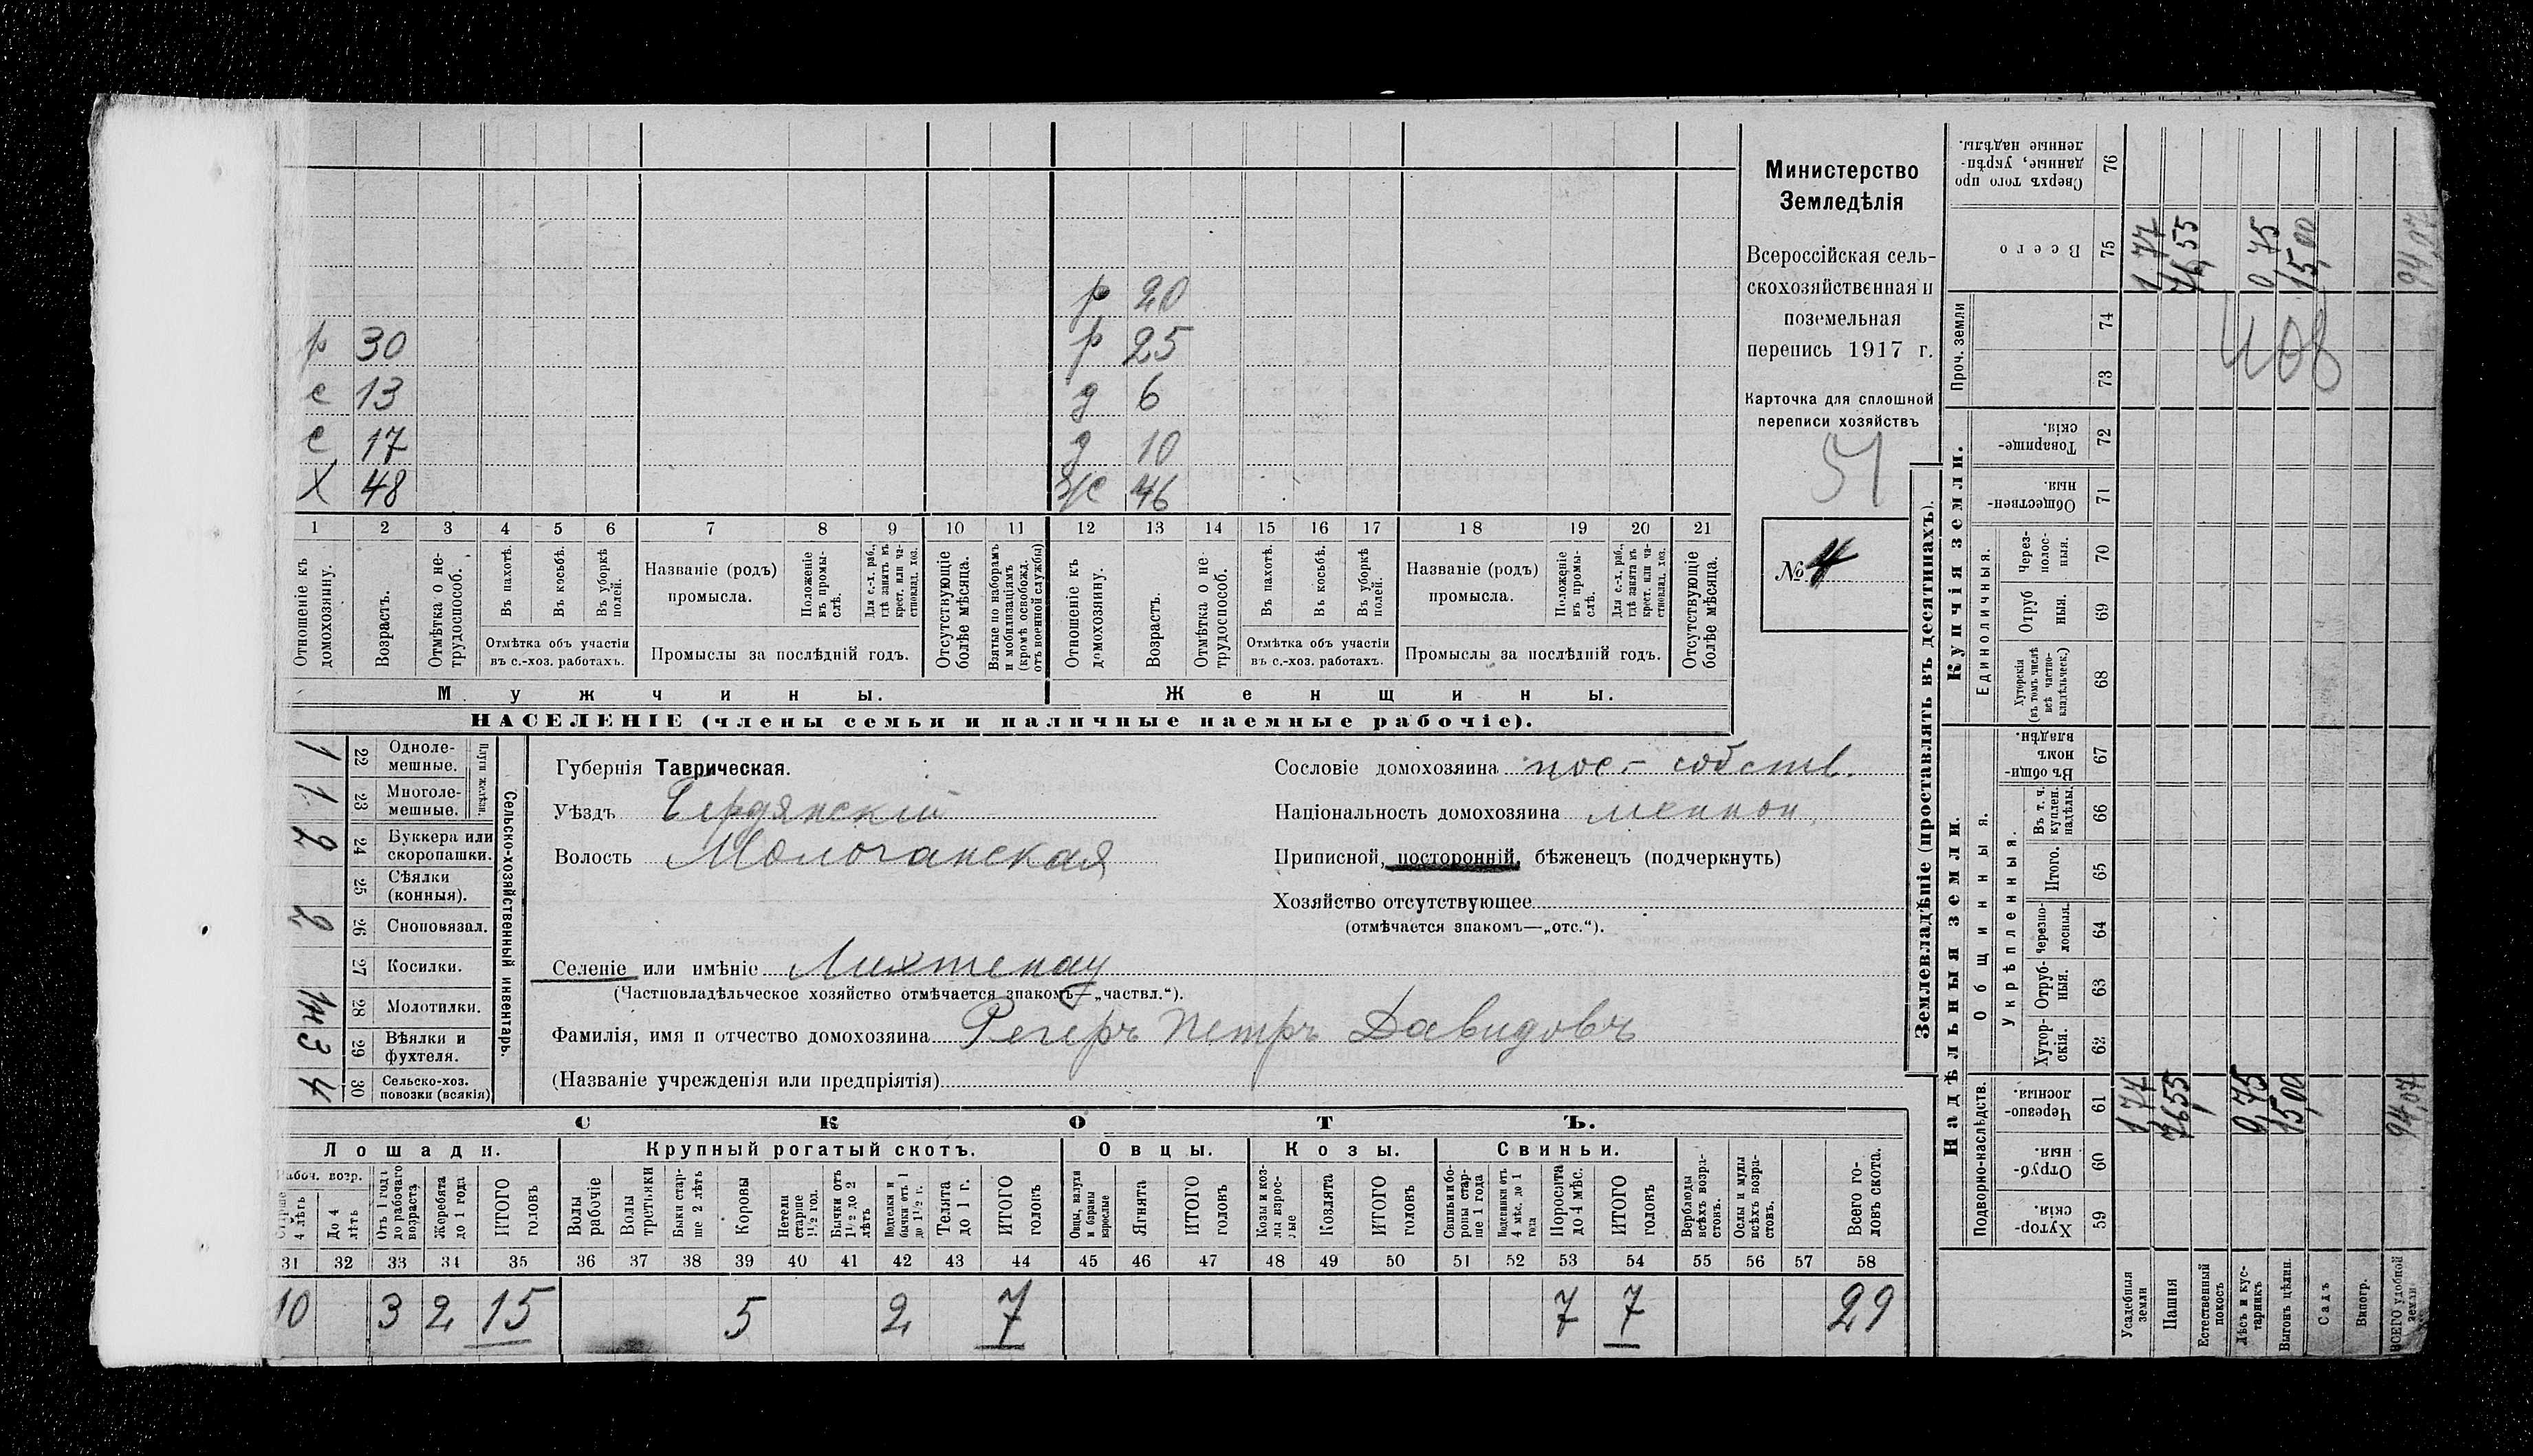 р 20
р 30 р 25
с 13 д 6
с 17 д 10
Х 48 46
1 2 3 4 5 6 7 8 9 10 11 12 13 14 15 16 17 18 19 20 21
Отношеніе къ домохозяину.
Возрастъ.
Отмѣтка о не-трудоспособ.
Въ пахотѣ.
Въ косьбѣ.
Въ уборкѣ полей.
Отмѣтка объ участіи
въ с.-хоз. работахъ.
Названіе (родъ)
промысла.
Положеніе въ промы-слѣ.
Для с.-х. раб., гдѣ занятъ въ крест. или ча-стновлад. хоз.
Промыслы за послѣдній годъ.
Отсутствующіе болѣе мѣсяца.
Взятые по наборамъ и мобилизаціямъ (кромѣ освобожд. отъ военной службы)
Отношеніе къ домохозяину.
Возрастъ.
Отмѣтка о не-трудоспособ.
Въ пахотѣ.
Въ косьбѣ.
Въ уборкѣ полей.
Отмѣтка объ участіи
въ с.-хоз. работахъ.
Названіе (родъ)
промысла.
Положеніе въ промы-слѣ.
Для с.-х. раб., гдѣ занята въ крест. или ча-стновлад. хоз.
Промыслы за послѣдній годъ.
Отсутствующіе болѣе мѣсяца.
Мужчины. Женщины.
НАСЕЛЕНІЕ (члены семьи и наличные наемные рабочіе).
Министерство
Земледѣлія
Всероссійская сель-
скохозяйственная и
поземельная
перепись 1917 г.
Карточка для сплошной
переписи хозяйствъ
51
№ 4
Сельско-хозяйственный инвентарь.
Плуги желѣзн.
1 22 Одноле-мешные.
1 23 Многоле-мешные.
2 24 Буккера или скоропашки.
25 Сѣялки (конныя).
2 26 Сноповязал.
27 Косилки.
28 Молотилки.
3 29 Вѣялки и фухтеля.
4 30 Сельско-хоз. повозки (всякія)
Губернія Таврическая.
Уѣздъ Бердянскій
Волость Молочанская
Селеніе или имѣніе Лихтенау
(Частновладѣльческое хозяйство отмѣчается знакомъ—„частвл.“).
Фамилія, имя и отчество домохозяина Регеръ Петръ Давидовъ
(Названіе учрежденія или предпріятія)
Сословіе домохозяина пос.- собств.
Національность домохозяина меннон.
Приписной, посторонній, бѣженецъ (подчеркнуть)
Хозяйство отсутствующее
(отмѣчается знакомъ—„отс.“).
СКОТЪ.
Лошади. Крупный рогатый скотъ. Овцы. Козы. Свиньи.
Рабоч. возр.
Старше 4 лѣтъ
До 4 лѣтъ
Отъ 1 года до рабочаго возраста
Жеребята до 1 года
ИТОГО головъ
Волы рабочіе
Волы третьяки
Быки стар-ше 2 лѣтъ
Коровы
Нетели старше 1½ год.
Бычки отъ 1½ до 2 лѣтъ
Подтелки и бычки отъ 1 до 1½ г.
Телята до 1 г.
ИТОГО головъ
Овцы, валухи и бараны взрослые
Ягнята
ИТОГО головъ
Козы и коз-лы взрос-лые
Козлята
ИТОГО головъ
Свиньи и бо-ровы стар-ше 1 года
Подсвинки отъ 4 мѣс. до 1 года
Поросята до 4 мѣс.
ИТОГО головъ
Верблюды всѣхъ возра-стовъ.
Ослы и мулы всѣхъ возра-стовъ.
Всего го-ловъ скота.
31 32 33 34 35 36 37 38 39 40 41 42 43 44 45 46 47 48 49 50 51 52 53 54 55 56 57 58
10 3 2 15 5 2 7 7 7 29
Землевладѣніе (проставлять въ десятинахъ).
Купчія земли.
Надѣльныя земли.
Сверхъ того про данные, укрѣп-ленные надѣлы. 76
Всего 75 76,55 0,75 15,00 94,07
Проч. земли 74 73
408
Товарище-скія. 72
Обществен-ныя. 71
Единоличныя.
Через-полос-ныя. 70
Отруб ныя. 69
Хуторскія (въ томъ числѣ всѣ частно-владѣльческ.) 68
Общинныя.
Въ общи-номъ владѣн. 67
Укрѣпленныя.
Въ т. ч. куплен. надѣлы. 66
Итого. 65
Черезпо-лосныя. 64
Отруб-ныя. 63
Хутор-скія. 62
Подворно-наслѣдств.
Черезпо-лосныя. 61 76,55 0,75 15,00 94,07
Отруб-ныя. 60
Хутор-скія. 59
Усадебныя земли
Пашня
Естественный покосъ
Лѣсъ и кус-тарникъ
Выгонъ цѣлин.
Садъ
Виногр.
ВСЕГО удобной земли